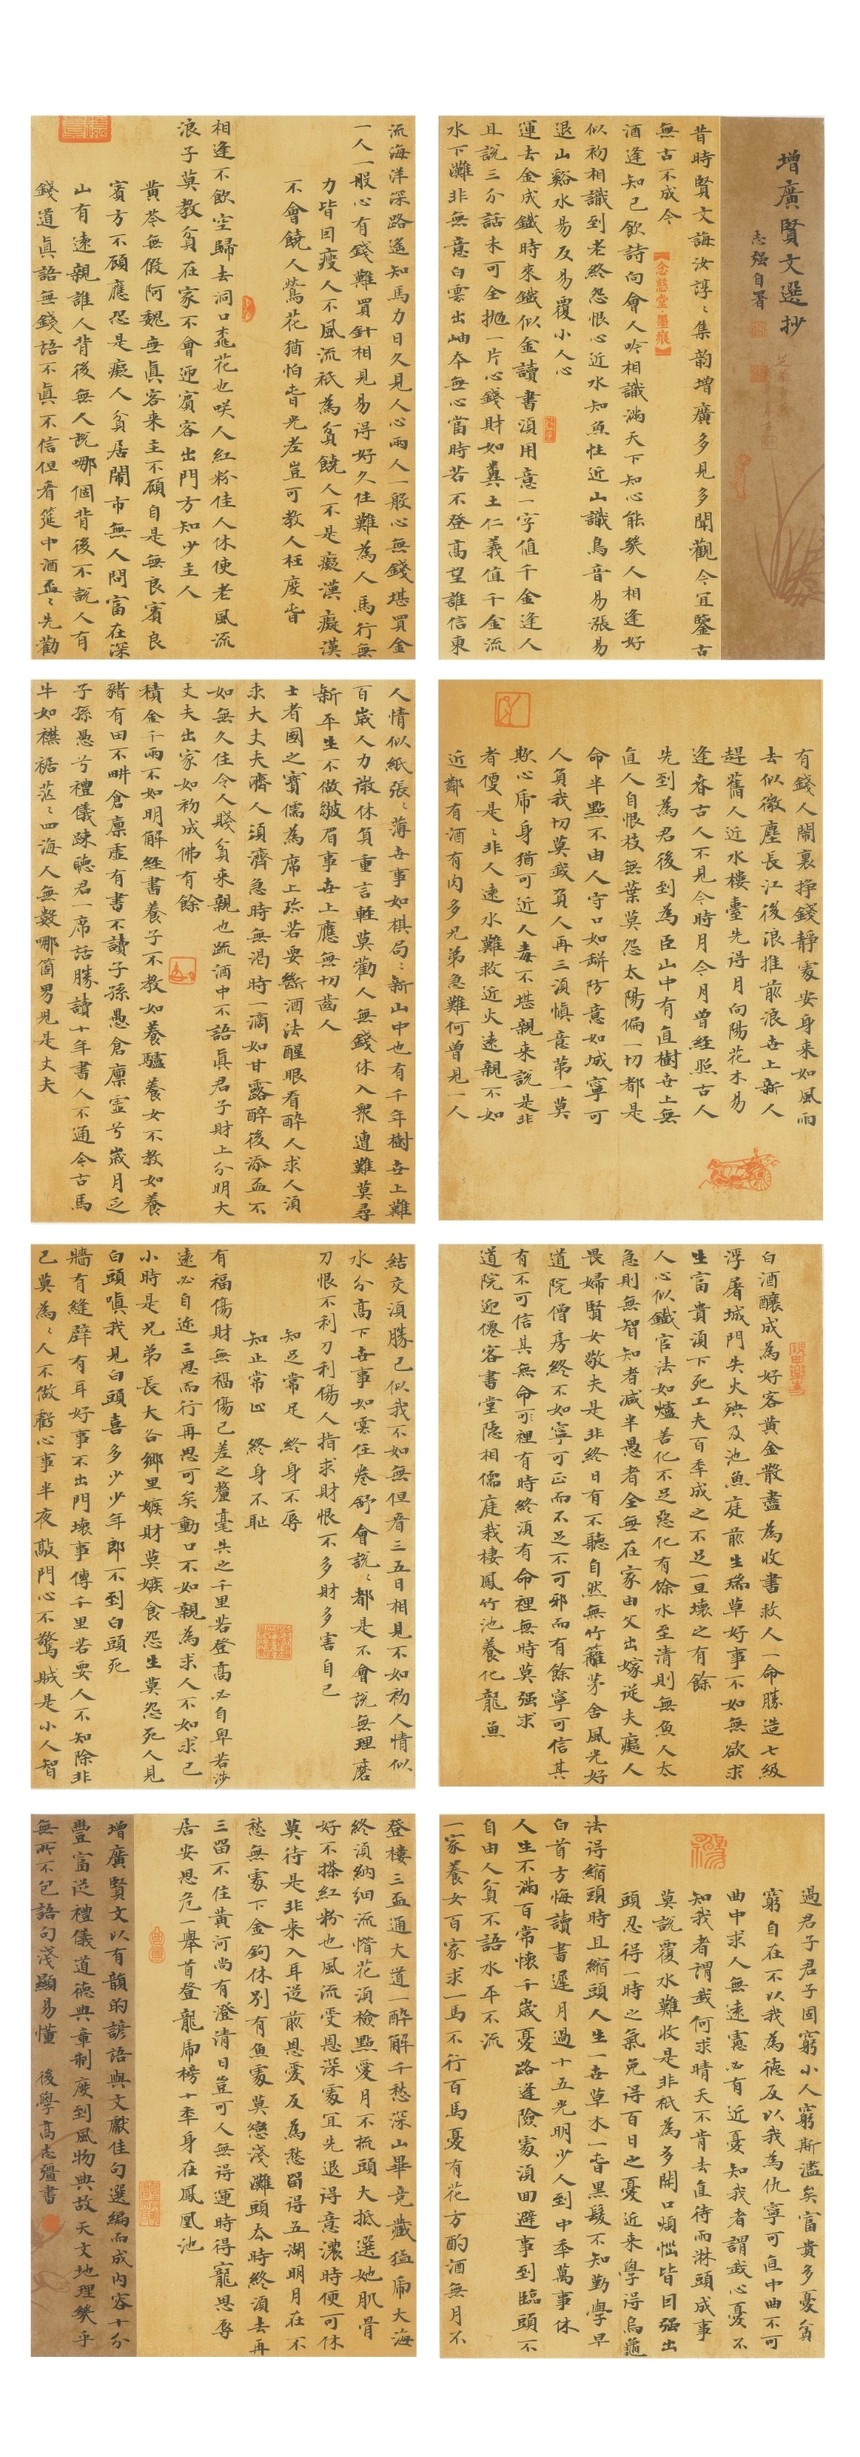 增廣賢文選抄
志强自署
昔時賢文誨汝諄〻集韵增廣多見多聞觀今宜鑒古
無古不成今
【念慈堂·墨痕】
酒逢知己飲詩向會人吟相識滿天下知心能幾人相逢好
似初相識到老終怨恨心近水知魚性近山識鳥音易漲易
退山谿水易反易覆小人心
運去金成鐵時來鐵似金讀書須用意一字值千金逢人
且說三分話未可全拋一片心錢財如糞土仁義值千金流
水下灘非無意白雲出岫本無心當時若不登高望誰信東
流海洋深路遙知馬力日久見人心兩人一般心無錢堪買金
一人一般心有錢難買針相見易得好久住難為人馬行無
力皆因瘦人不風流祇為貧饒人不是癡漢癡漢
不會饒人鶯花猶怕春光老豈可教人枉度春
相逢不飲空歸去洞口桃花也咲人紅粉佳人休使老風流
浪子莫教貧在家不會迎賓客出門方知少主人
黄芩無假阿魏無真客來主不顧自是無良賓良
賓方不顧應恐是癡人貧居鬧市無人問富在深
山有遠親誰人背後無人說哪個背後不說人有
錢道真語無錢語不真不信但看筵中酒盃〻先勸
有錢人鬧裏掙錢靜處安身来如風雨
去似微塵長江後浪推前浪世上新人
趕舊人近水樓臺先得月向陽花木易
逢春古人不見今時月今月曾經照古人
先到為君後到為臣山中有直樹世上無
直人自恨枝無葉莫怨太陽偏一切都是
命半點不由人守口如缾防意如城寧可
人負我切莫我負人再三須慎意第一莫
欺心虎身猶可近人毒不堪親来說是非
者便是〻非人遠水難救近火遠親不如
近鄰有酒有肉多兄弟急難何曾見一人
人情似紙張〻薄世事如棋局〻新山中也有千年樹世上難
百歲人力微休負重言輕莫勸人無錢休入衆遭難莫尋
親平生不做皺眉事世上應無切齒人
士者國之寶儒為席上珍若要斷酒法醒眼看醉人求人須
求大丈夫濟人須濟急時無渴時一滴如甘露醉後添盃不
如無久住令人賤貧来親也疏酒中不語真君子財上分明大
丈夫出家如初成佛有餘
積金千兩不如明解經書養子不教如養驢養女不教如養
豬有田不畊倉廪虛有書不讀子孫愚倉廪虛兮歲月乏
子孫愚兮禮儀疎聽君一席話勝讀十年書人不通今古馬
牛如襟裾茫〻四海人無數哪箇男兒是丈夫
白酒釀成為好客黄金散盡為收書救人一命勝造七級
浮屠城門失火殃及池魚庭前生瑞草好事不如無欲求
生富貴須下死工夫百年成之不足一旦壞之有餘
人心似鐵官法如爐善化不足惡化有餘水至清則無魚人太
急則無智知者減半愚者全無在家由父出嫁從夫癡人
畏婦賢女敬夫是非終日有不聽自然無竹籬茅舍風光好
道院僧房終不如寧可正而不足不可邪而有餘寧可信其
有不可信其無命裡有時終須有命裡無時莫强求
道院迎僊客書堂隱相儒庭栽棲鳳竹池養化龍魚
結交須勝己似我不如無但看三五日相見不如初人情似
水分高下世事如雲任卷舒會說〻都是不會說無理磨
刀恨不利刀利傷人指求財恨不多財多害自己
知足常足　終身不辱
知止常止　終身不恥
有福傷財無福傷己差之釐毫失之千里若登高必自卑若涉
遠必自迩三思而行再思可矣動口不如親為求人不如求己
小時是兄弟長大各鄉里嫉財莫嫉食怨生莫怨死人見
白頭嗔我見白頭喜多少少年郎不到白頭死
牆有縫壁有耳好事不出門壞事傳千里若要人不知除非
己莫為〻人不做虧心事半夜敲門心不驚賊是小人智
過君子君子固窮小人窮斯濫矣富貴多憂貧
窮自在不以我為德反以我為仇寧可直中曲不可
曲中求人無遠慮必有近憂知我者謂我心憂不
知我者謂我何求晴天不肯去直待雨淋頭成事
莫說覆水難收是非祇為多開口煩惱皆因强出
頭忍得一時之氣免得百日之憂近来學得烏龜
法得縮頭時且縮頭人生一世草木一春黑髮不知勤學早
白首方悔讀書遲月過十五光明少人到中年萬事休
人生不滿百常懷千歲憂路逢險處須回避事到臨頭不
自由人貧不語水平不流
一家養女百家求一馬不行百馬憂有花方酌酒無月不
登樓三盃通大道一醉解千愁深山畢竟藏猛虎大海
終須納细流惜花須檢點愛月不梳頭大抵選她肌骨
好不搽紅粉也風流受恩深處宜先退得意濃時便可休
莫待是非来入耳從前恩愛反為愁留得五湖明月在不
愁無處下金鉤休别有魚處莫戀淺灘頭去時終須去再
三留不住黄河尚有澄清日豈可人無得運時得寵思辱
居安思危一舉首登龍虎榜十年身在鳳凰池
增廣賢文以有韻的諺語與文獻佳句選編而成内容十分
豐富從禮儀道德典章制度到風物典故天文地理幾乎
無所不包語句淺顯易懂　後學高志疆書